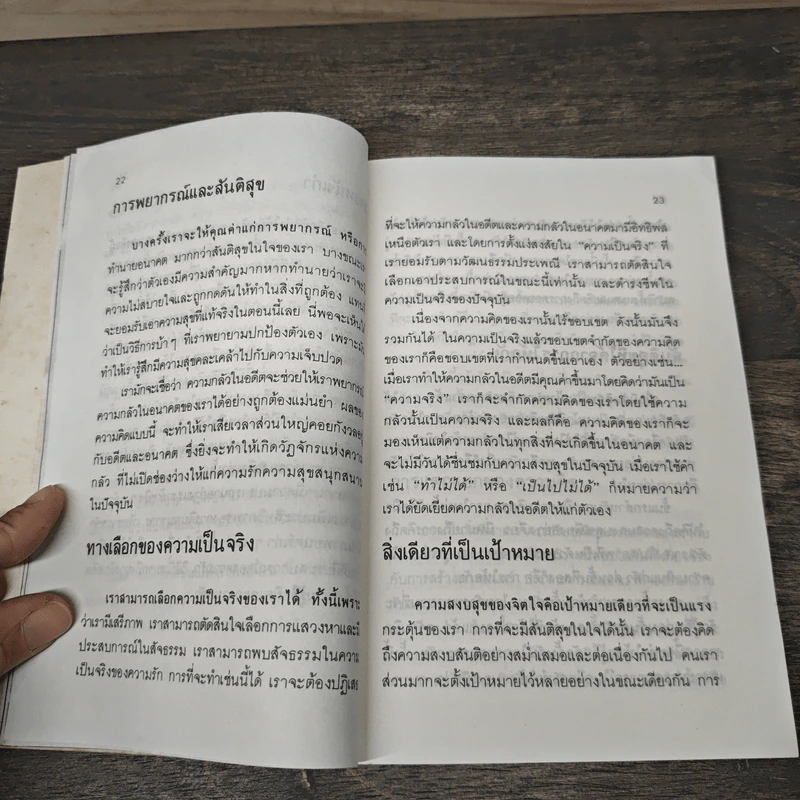 22
การพยากรณ์และสันติสุข
บางครั้งเราจะให้คุณค่าแก่การพยากรณ์ หรือการ
ทำนายอนาคต มากกว่าสันติสุขในใจของเรา บางขณะเรา
จะรู้สึกว่าตัวเองมีความสำคัญมากหากทำนายว่าเราจะมี
ความไม่สบายใจและถูกกดดันให้ทำในสิ่งที่ถูกต้อง แทนที่
จะยอมรับเอาความสุขที่แท้จริงในตอนนี้เลย นี่พอจะเห็นได้
ว่าเป็นวิธีการบ้าๆ ที่เราพยายามปกป้องตัวเอง เพราะมัน
ทำให้เรารู้สึกมีความสุขคละเคล้าไปกับความเจ็บปวด
เรามักจะเชื่อว่า ความกลัวในอดีตจะช่วยให้เราพยากรณ์
ความกลัวในอนาคตของเราได้อย่างถูกต้องแม่นยำ ผลของ
ความคิดแบบนี้ จะทำให้เราเสียเวลาส่วนใหญ่คอยกังวลอยู่
กับอดีตและอนาคต ซึ่งยิ่งจะทำให้เกิดวัฏจักรแห่งความ
กลัว ที่ไม่เปิดช่องว่างให้แก่ความรักความสุขสนุกสนาน
ในปัจจุบัน
ทางเลือกของความเป็นจริง
เราสามารถเลือกความเป็นจริงของเราได้ ทั้งนี้เพราะ
ว่าเรามีเสรีภาพ เราสามารถตัดสินใจเลือกการแสวงหาและมี
ประสบการณ์ในสัจธรรม เราสามารถพบสัจธรรมในความ
เป็นจริงของความรัก การที่จะทำเช่นนี้ได้ เราจะต้องปฏิเสธ
23
ที่จะให้ความกลัวในอดีตและความกลัวในอนาคตมามีอิทธิพล
เหนือตัวเรา และโดยการตั้งแง่สงสัยใน “ความเป็นจริง” ที่
เรายอมรับตามวัฒนธรรมประเพณี เราสามารถตัดสินใจ
เลือกเอาประสบการณ์ในขณะนี้เท่านั้น และดำรงชีพใน
ความเป็นจริงของปัจจุบัน
เนื่องจากความคิดของเรานั้นไร้ขอบเขต ดังนั้นมันจึง
รวมกันได้ ในความเป็นจริงแล้วขอบเขตจำกัดของความคิด
ของเราก็คือขอบเขตที่เรากำหนดขึ้นเอาเอง ตัวอย่างเช่น...
เมื่อเราทำให้ความกลัวในอดีตมีคุณค่าขึ้นมาโดยคิดว่ามันเป็น
“ความจริง” เราก็จะจำกัดความคิดของเราโดยใช้ความ
กลัวนั้นเป็นความจริง และผลก็คือ ความคิดของเราก็จะ
มองเห็นแต่ความกลัวในทุกสิ่งที่จะเกิดขึ้นในอนาคต และ
จะไม่มีวันได้ชื่นชมกับความสงบสุขในปัจจุบัน เมื่อเราใช้คำ
เช่น “ทำไม่ได้” หรือ “เป็นไปไม่ได้” ก็หมายความว่า
เราได้ยัดเยียดความกลัวในอดีตให้แก่ตัวเอง
สิ่งเดียวที่เป็นเป้าหมาย
ความสงบสุขของจิตใจคือเป้าหมายเดียวที่จะเป็นแรง
กระตุ้นของเรา การที่จะมีสันติสุขในใจได้นั้น เราจะต้องคิด
ถึงความสงบสันติอย่างสม่ำเสมอและต่อเนื่องกันไป คนเรา
ส่วนมากจะตั้งเป้าหมายไว้หลายอย่างในขณะเดียวกัน การ